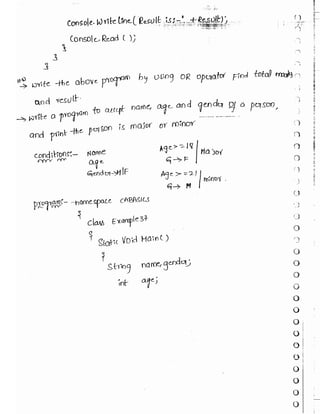 Console.WriteLine("Result is:-"+Result);
Console.Read();
}
}
}
→ write the above program by using OR operator find total marks
and result.
→ write a program to accept name, age, and gender of a person,
and print the person is major or minor
conditions:- Name Age>=18 | Major
age G→F
Gender→M|F Age>=21 | minor.
G→M
program:- namespace CABASICS
{
class Example37
{
static void Main()
{
string name, gender;
int age;